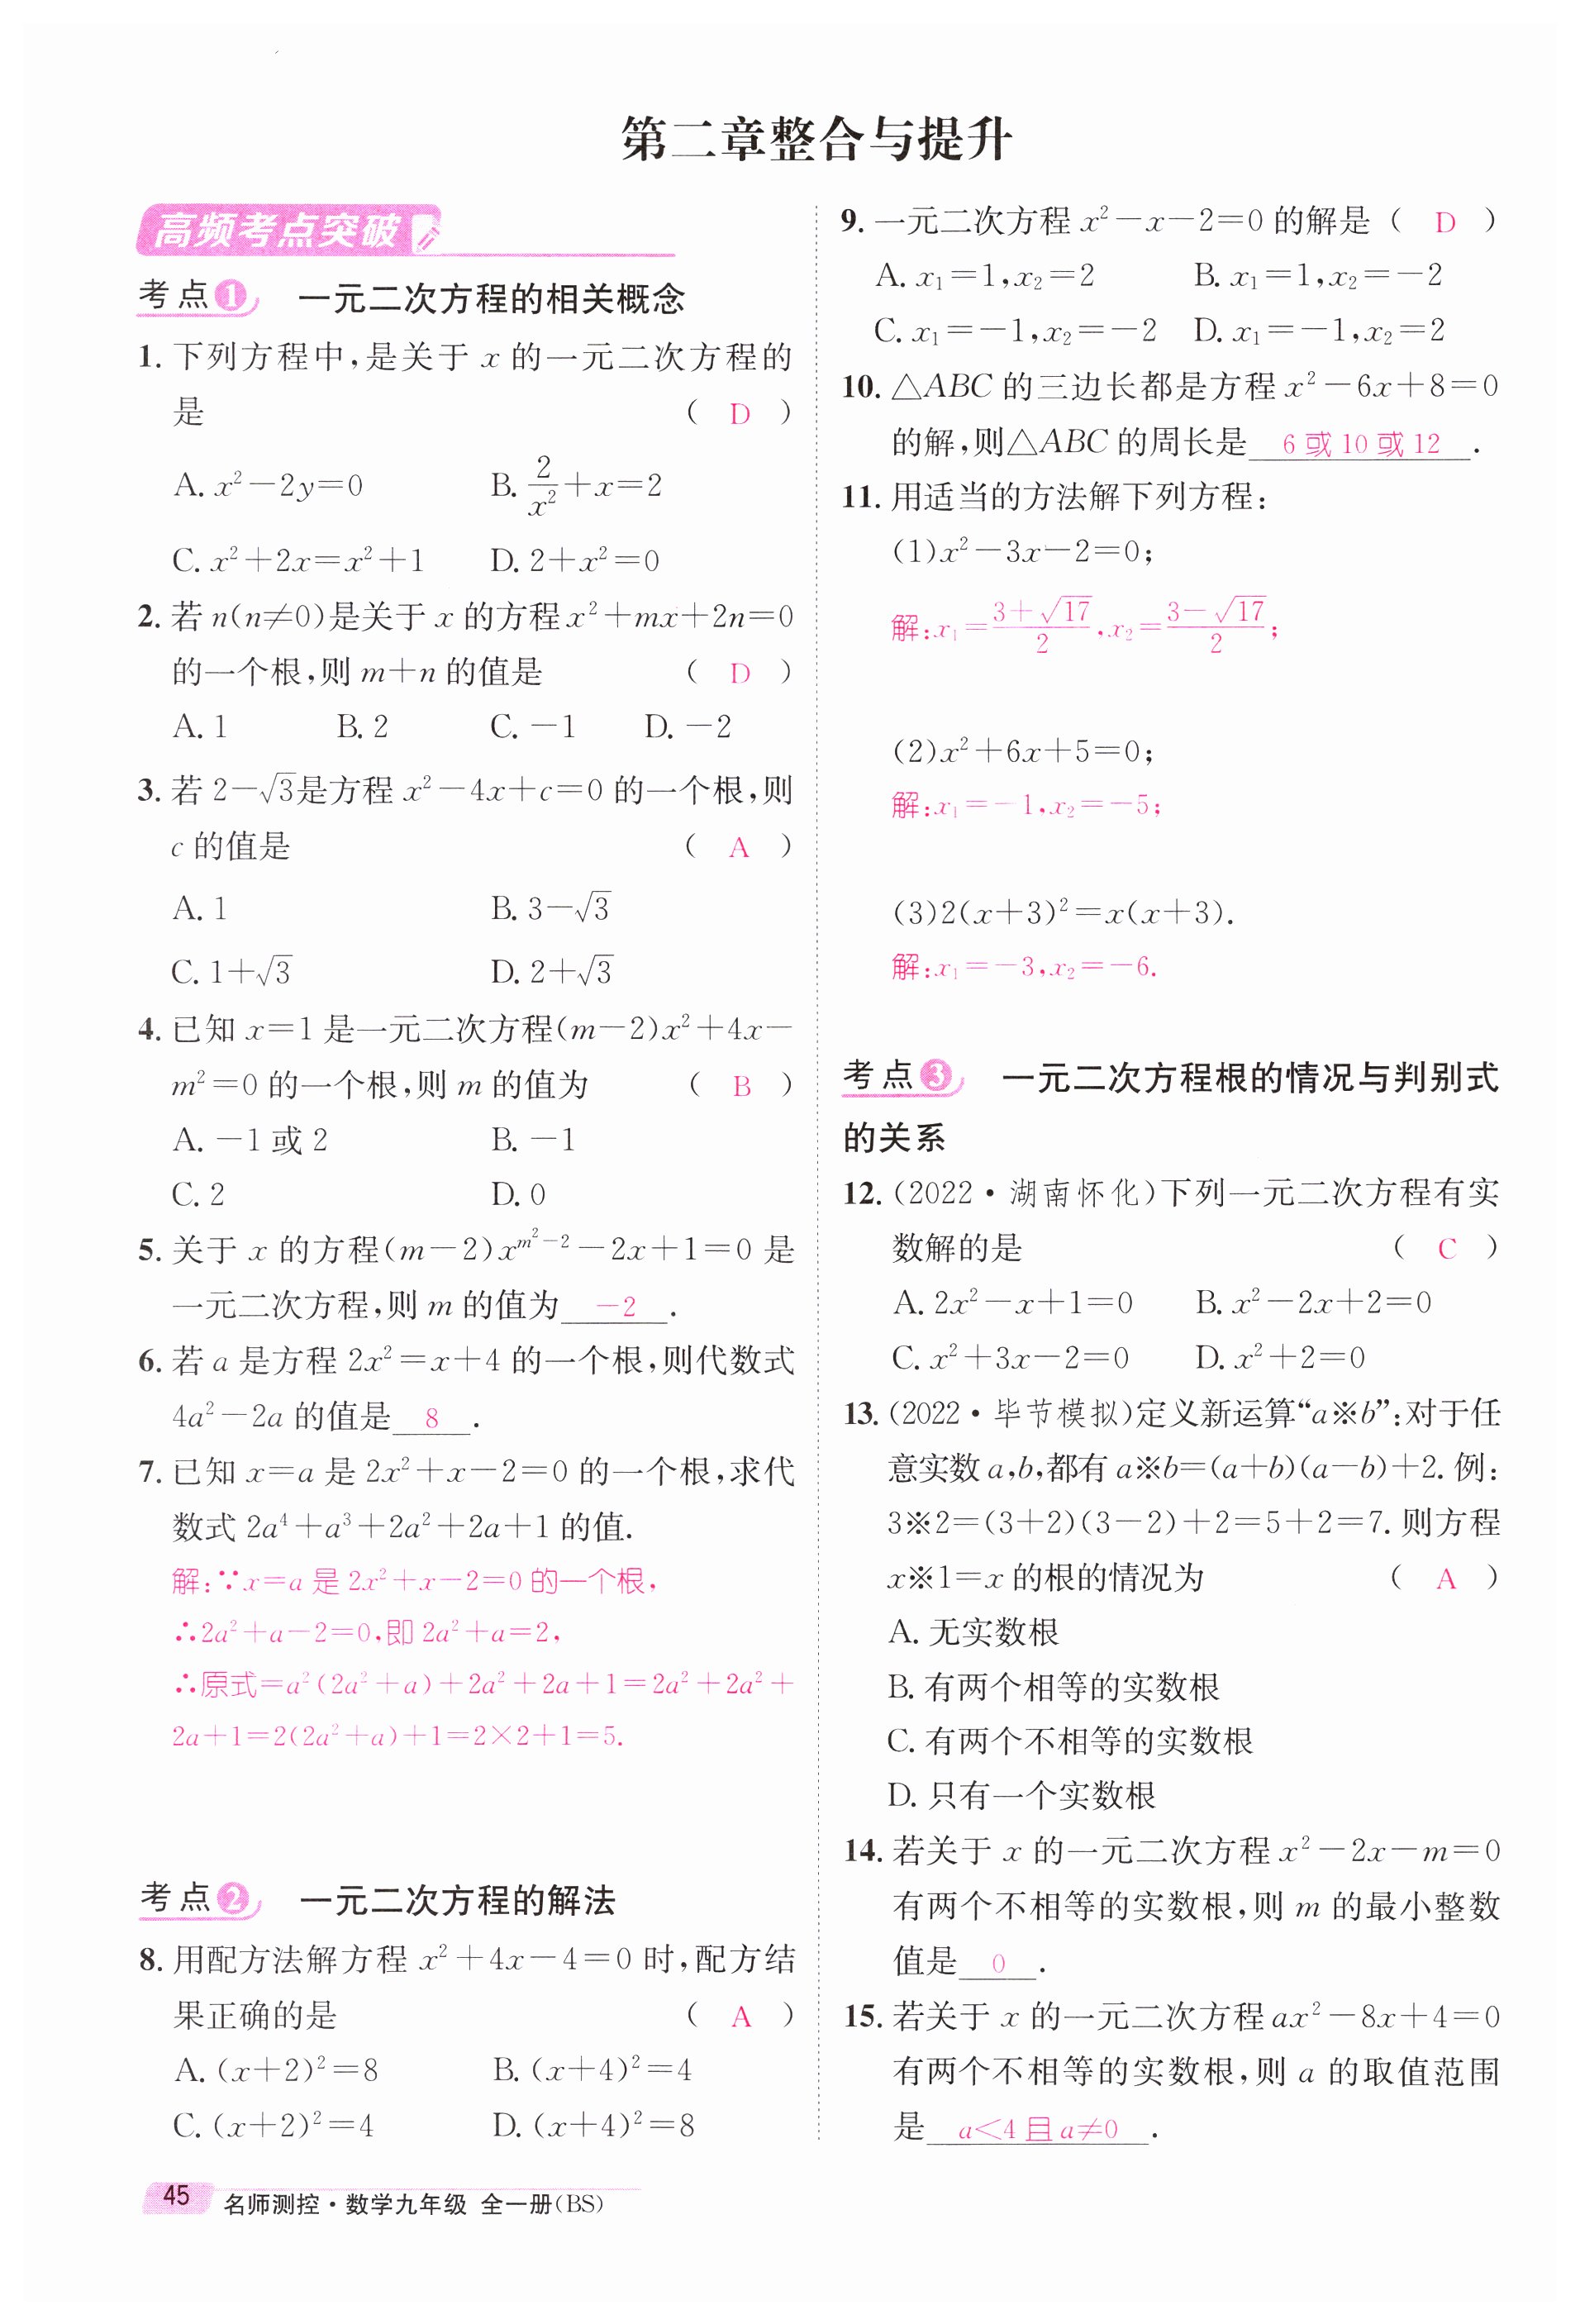 第二章整合与提升
高频考点突破
考点1 一元二次方程的相关概念
1. 下列方程中,是关于 x 的一元二次方程的
是 ( D )
A. x²-2y=0 B. 2/x²+x=2
C. x²+2x=x²+1 D. 2+x²=0
2. 若 n(n≠0)是关于 x 的方程 x²+mx+2n=0
的一个根,则 m+n 的值是 ( D )
A. 1 B. 2 C. -1 D. -2
3. 若 2-√3是方程 x²-4x+c=0 的一个根,则
c 的值是 ( A )
A. 1 B. 3-√3
C. 1+√3 D. 2+√3
4. 已知 x=1 是一元二次方程(m-2)x²+4x-
m²=0 的一个根,则 m 的值为 ( B )
A. -1 或 2 B. -1
C. 2 D. 0
5. 关于 x 的方程(m-2)x^(m²-2)-2x+1=0 是
一元二次方程,则 m 的值为 -2 .
6. 若 a 是方程 2x²=x+4 的一个根,则代数式
4a²-2a 的值是 8 .
7. 已知 x=a 是 2x²+x-2=0 的一个根,求代
数式 2a⁴+a³+2a²+2a+1 的值.
解:∵x=a 是 2x²+x-2=0 的一个根,
∴2a²+a-2=0,即 2a²+a=2,
∴原式=a²(2a²+a)+2a²+2a+1=2a²+2a²+
2a+1=2(2a²+a)+1=2×2+1=5.
考点2 一元二次方程的解法
8. 用配方法解方程 x²+4x-4=0 时,配方结
果正确的是 ( A )
A. (x+2)²=8 B. (x+4)²=4
C. (x+2)²=4 D. (x+4)²=8
45 名师测控·数学九年级 全一册(BS)
9. 一元二次方程 x²-x-2=0 的解是 ( D )
A. x₁=1,x₂=2 B. x₁=1,x₂=-2
C. x₁=-1,x₂=-2 D. x₁=-1,x₂=2
10. △ABC 的三边长都是方程 x²-6x+8=0
的解,则△ABC 的周长是 6 或 10 或 12 .
11. 用适当的方法解下列方程:
(1)x²-3x-2=0;
解:x₁=(3+√17)/2,x₂=(3-√17)/2;
(2)x²+6x+5=0;
解:x₁=-1,x₂=-5;
(3)2(x+3)²=x(x+3).
解:x₁=-3,x₂=-6.
考点3 一元二次方程根的情况与判别式
的关系
12. (2022·湖南怀化)下列一元二次方程有实
数解的是 ( C )
A. 2x²-x+1=0 B. x²-2x+2=0
C. x²+3x-2=0 D. x²+2=0
13. (2022·毕节模拟)定义新运算“a※b”:对于任
意实数 a,b,都有 a※b=(a+b)(a-b)+2. 例:
3※2=(3+2)(3-2)+2=5+2=7. 则方程
x※1=x 的根的情况为 ( A )
A. 无实数根
B. 有两个相等的实数根
C. 有两个不相等的实数根
D. 只有一个实数根
14. 若关于 x 的一元二次方程 x²-2x-m=0
有两个不相等的实数根,则 m 的最小整数
值是 0 .
15. 若关于 x 的一元二次方程 ax²-8x+4=0
有两个不相等的实数根,则 a 的取值范围
是 a<4 且 a≠0 .